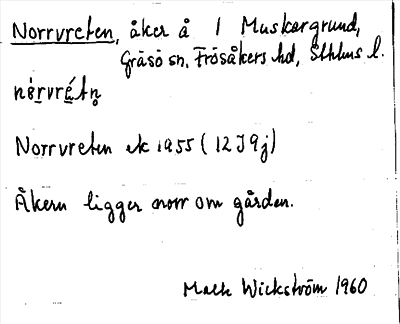 Norrvreten, åker å 1 Muskargrund,
Gräsö sn, Frösåkers hd, Sthlms l.
Norrvreten ek 1955 (12J9j)
Åkern ligger norr om gården.
Wickström 1960